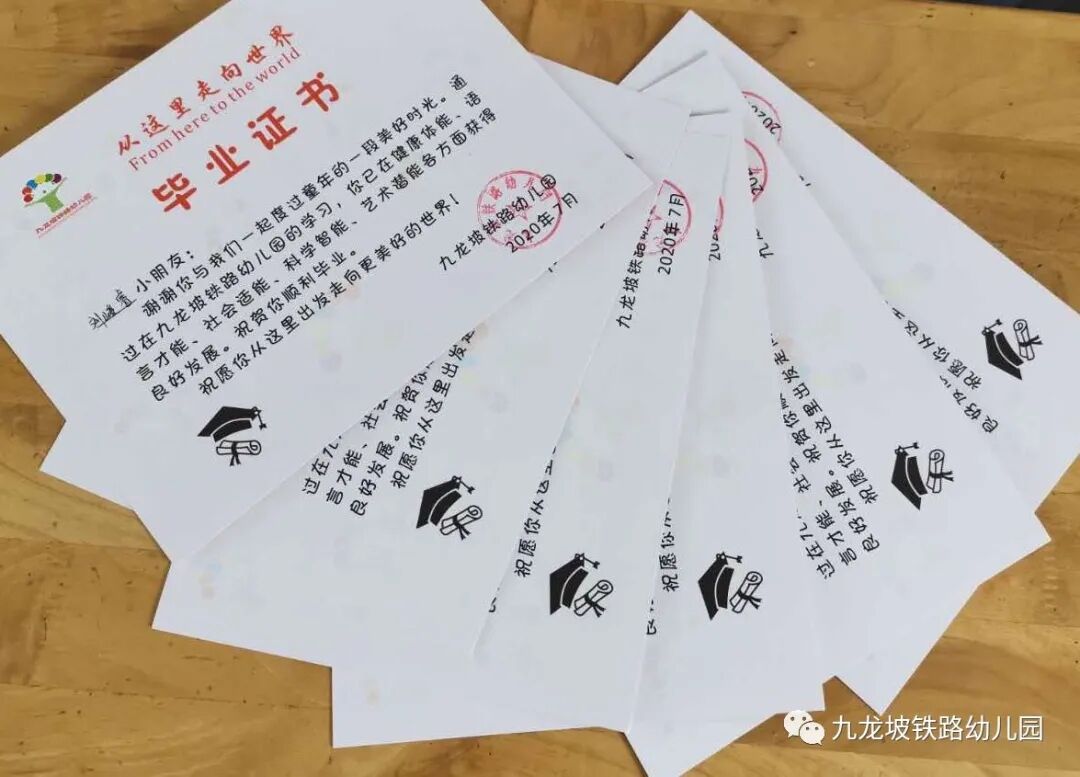 从这里走向世界
From here to the world
毕业证书
九龙坡铁路幼儿园
小朋友：
谢谢你与我们一起度过童年的一段美好时光。通
过在九龙坡铁路幼儿园的学习，你已在健康体能、语
言才能、社会适能、科学智能、艺术潜能各方面获得
良好发展。祝贺你顺利毕业。
祝愿你从这里出发走向更美好的世界！
九龙坡铁路幼儿园
2020年7月
过在九
言才能、社会
良好发展。祝贺你
祝愿你从这里出发
九龙坡铁路幼
2020年7月
祝愿你从这
2020
祝愿你
九
过在九
言才能、社
良好发展。祝贺你
祝愿你从这里出发走
2020
良好发
祝愿你从这
九龙坡铁路幼儿园